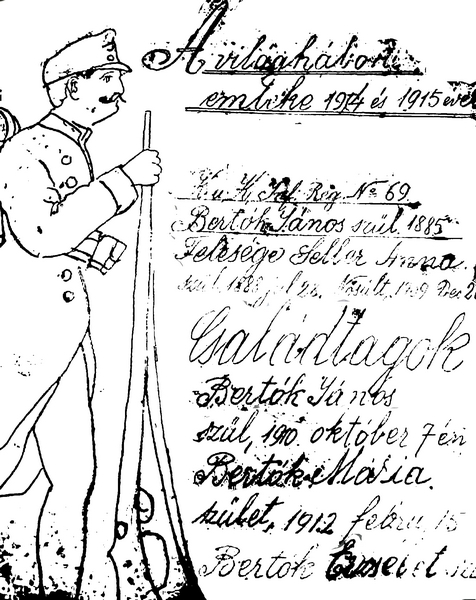 A világháború
emléke 1914 és 1915 éve
K. u. K. Inf. Reg. No 69.
Bertók János szül. 1885
Felesége Seller Anna.
szül. 1889
Családtagok
Bertók János
szül, 1910 október 7én
Bertók Mária.
szület, 1912 febru, 15
Bertók Erzsébet